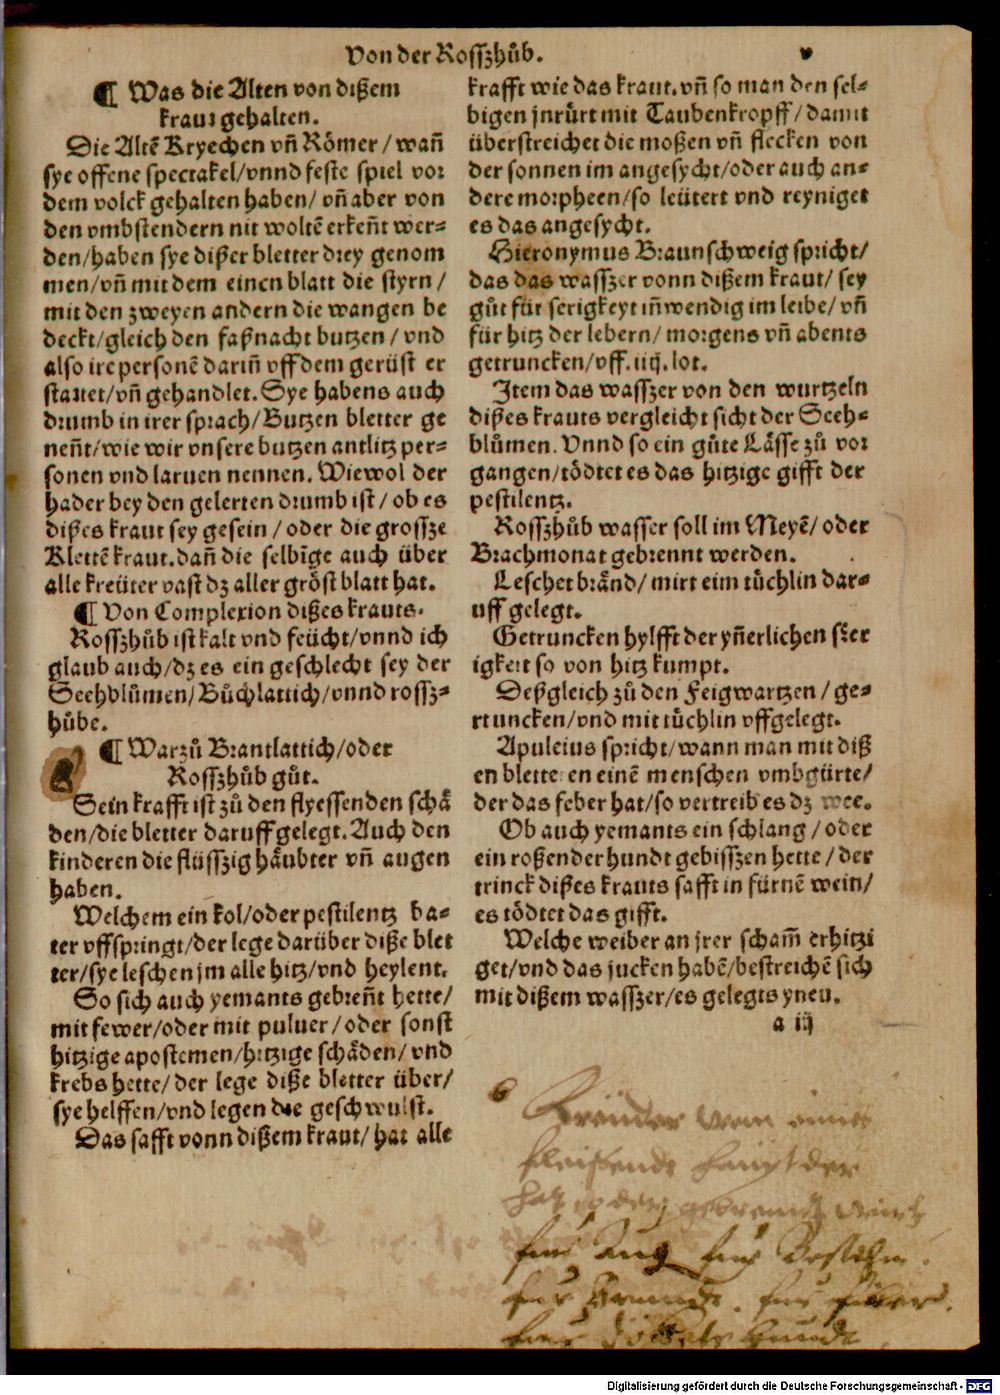 Von der Rossʒhůb.
v
¶ Was die Alten von dißem
kraut gehalten.
Die Altẽ Kryechen vñ Römer / wañ
sye offene spectakel/vnnd feste spiel vor
dem volck gehalten haben/ vñ aber von
den vmbstendern nit woltẽ erkeñt wer⸗
den/haben sye dißer bletter drey genom
men/vñ mit dem einen blatt die styrn /
mit den zweyen andern die wangen be
deckt/gleich den faßnacht butzen / vnd
also ire personẽ dariñ vff dem gerüst er
stattet/vñ gehandlet. Sye habens auch
drumb in irer sprach/Butzen bletter ge
neñt/wie wir vnsere butzen antlitz per⸗
sonen vnd laruen nennen. Wiewol der
hader bey den gelerten drumb ist / ob es
dißes kraut sey gesein / oder die grossʒe
Klettẽ kraut. dañ die selbige auch über
alle kreüter vast dz aller gröst blatt hat.
¶ Von Complexion dißes krauts.
Rossʒhůb ist kalt vnd feücht/vnnd ich
glaub auch/dz es ein geschlecht sey der
Seehblůmen/Bůchlattich/vnnd rossʒ⸗
hůbe.
¶ Warzů Brantlattich/oder
Rossʒhůb gůt.
Sein krafft ist zů den flyessenden schä
den/die bletter daruff gelegt. Auch den
kinderen die flüssʒig häubter vñ augen
haben.
Welchem ein kol/oder pestilentz ba⸗
ter vffspringt/der lege darüber diße blet
ter/sye leschen jm alle hitz/vnd heylent.
So sich auch yemants gebreñt hette/
mit fewer/oder mit puluer / oder sonst
hitzige apostemen/hitzige schäden/ vnd
krebs hette/ der lege diße bletter über/
sye helffen/vnd legen die geschwulst.
Das safft vonn dißem kraut/ hat alle
krafft wie das kraut. vñ so man den sel⸗
bigen jnrürt mit Taubenkropff / damit
überstreichet die moßen vñ flecken von
der sonnen im angesycht/oder auch an⸗
dere morpheen/so leütert vnd reyniget
es das angesycht.
Hieronymus Braunschweig spricht/
das das wassʒer vonn dißem kraut/ sey
gůt für serigkeyt iñwendig im leibe/ vñ
für hitz der lebern/ morgens vñ abents
getruncken/vff.iiij.lot.
Item das wassʒer von den wurtzeln
dißes krauts vergleicht sicht der Seeh⸗
blůmen. Vnnd so ein gůte Lässe zů vor
gangen/tödtet es das hitzige gifft der
pestilentz.
Rossʒhůb wasser soll im Meyẽ/ oder
Brachmonat gebrennt werden.
Leschet bränd/ mirt eim tůchlin dar⸗
uff gelegt.
Getruncken hylfft der yñerlichen sʒer
igkeit so von hitz kumpt.
Deßgleich zů den Feigwartzen / ge⸗
rtuncken/vnd mit tůchlin vffgelegt.
Apuleius spricht/wann man mit diß
en bletteren einẽ menschen vmbgürte/
der das feber hat/so vertreib es dz wee.
Ob auch yemants ein schlang / oder
ein roßender hundt gebissʒen hette / der
trinck dißes krauts safft in fürnẽ wein/
es tödtet das gifft.
Welche weiber an jrer scham̃ erhitzi
get/vnd das jucken habẽ/bestreichẽ sich
mit dißem wassʒer/es gelegts yneu.
a iij
Digitalisierung gefördert durch die Deutsche Forschungsgemeinschaft - DFG